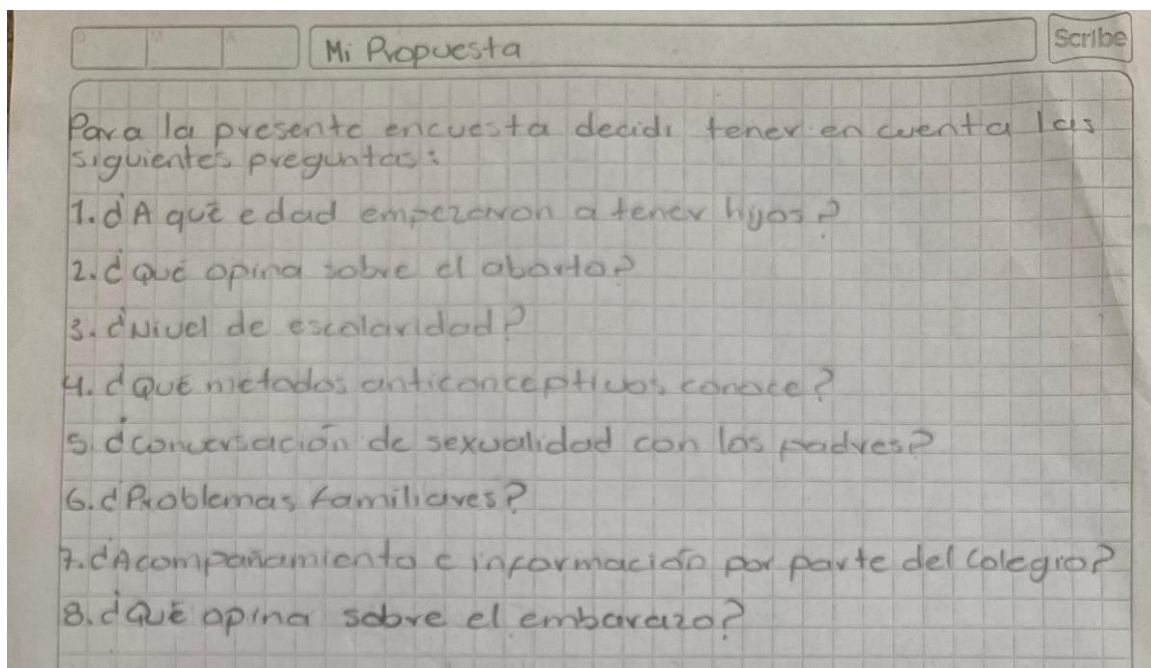 D M A
Mi Propuesta
Scribe
Para la presente encuesta decidi tener en cuenta las
siguientes preguntas:
1. ¿A qué edad empezaron a tener hijos?
2. ¿Qué opina sobre el aborto?
3. ¿Nivel de escolaridad?
4. ¿Qué metodos anticonceptivos conoce?
5. ¿conversación de sexualidad con los padres?
6. ¿Problemas familiares?
7. ¿Acompañamiento e información por parte del colegio?
8. ¿Qué opina sobre el embarazo?